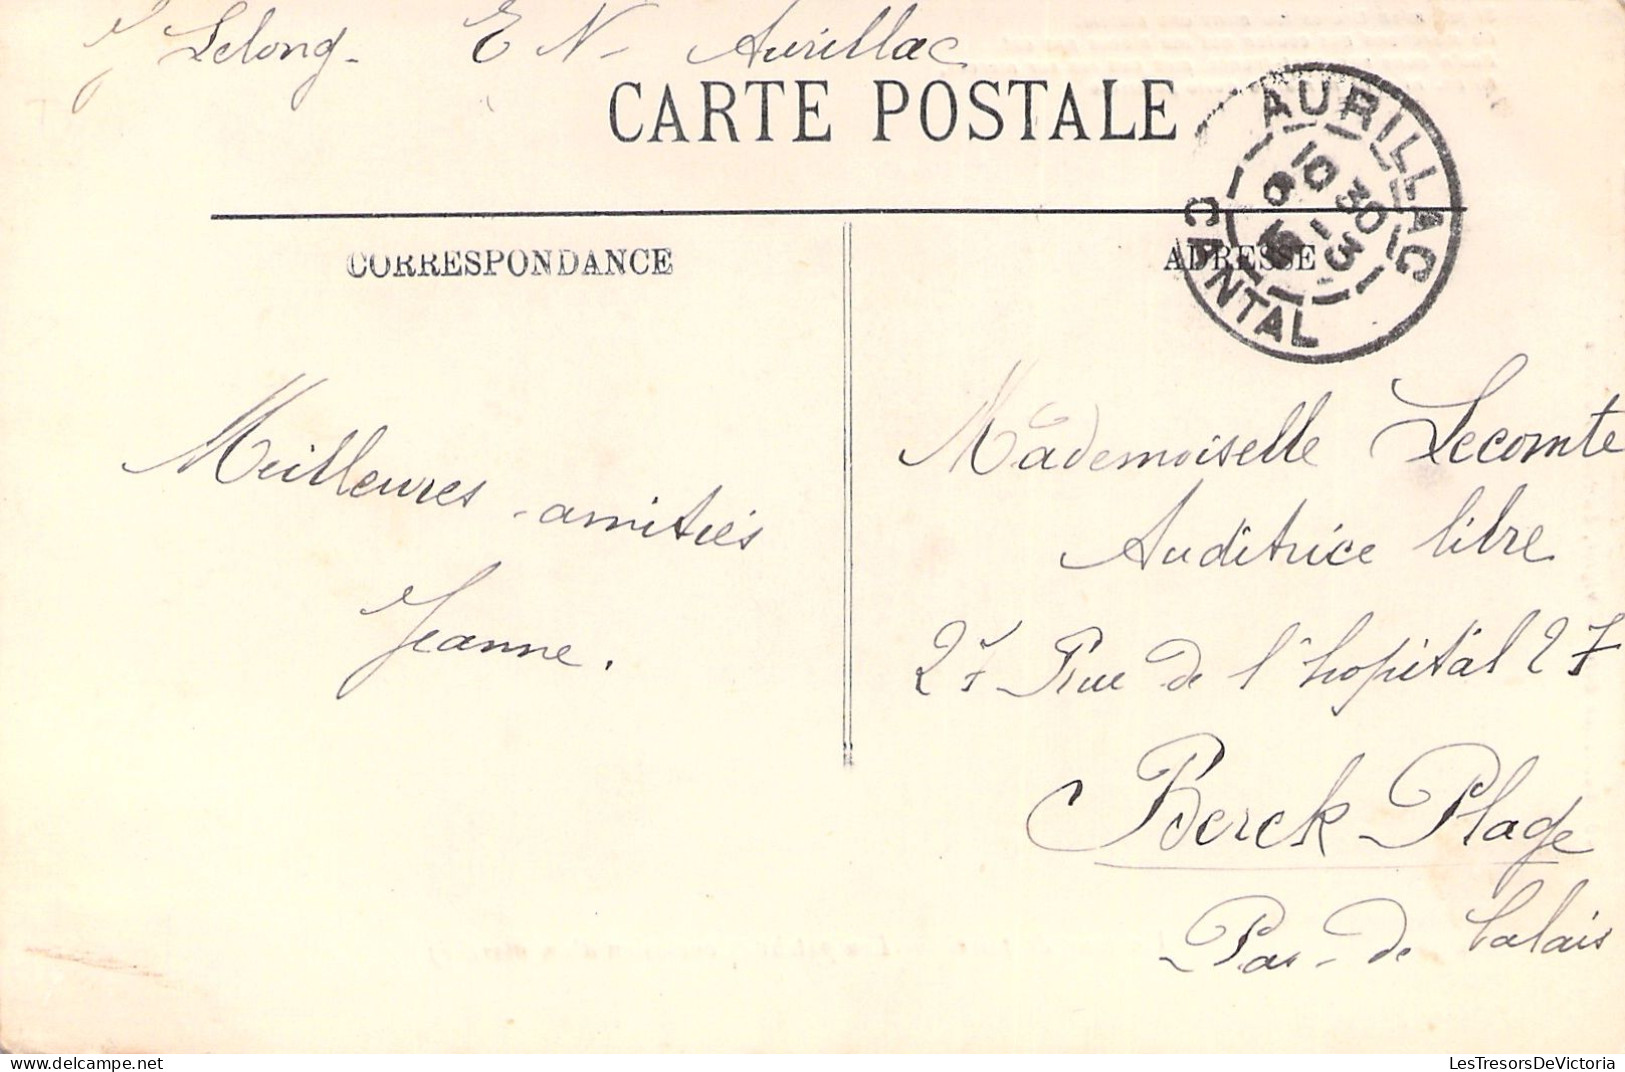 J Lelong - E N - Aurillac
CARTE POSTALE
AURILLAC
10 30
9 - 3
CANTAL
CORRESPONDANCE
ADRESSE
Meilleures amitiés
Jeanne.
Mademoiselle Lecomte
Auditrice libre
27 Rue de l'hopital 27
Berck-Plage
Pas-de Calais
LesTresorsDeVictoria